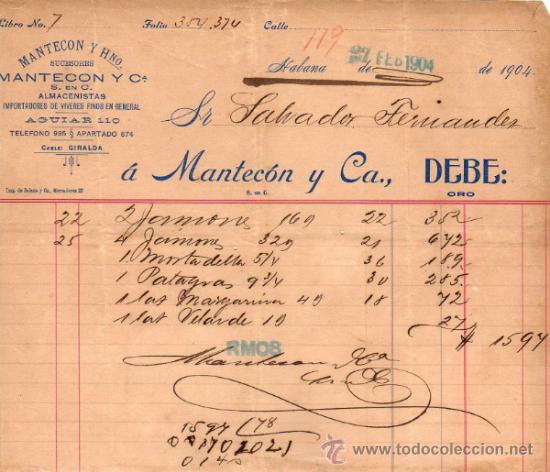 Libro No. 7 Folio 354,374 Calle
119
27 FEB 1904
Habana de de 1904
MANTECON Y HNO.
SUCESORES
MANTECON Y Ca.
S. EN C.
ALMACENISTAS
IMPORTADORES DE VIVERES FINOS EN GENERAL
AGUIAR 110
TELEFONO 985 APARTADO 674
CABLE: GIRALDA
Sr Salvador Fernandez
á Mantecón y Ca., DEBE:
S. en C. ORO
22 2 Jamones 16 22 352
25 4 Jamones 32 21 672
1 Mortadella 5/4 36 189
1 Patagras 9 3/4 30 285
1 lat Margarina 4 18 72
1 lat Velarde 1 27
$ 1597
RMOS
Mantecon y Ca
S en C
1597 /78